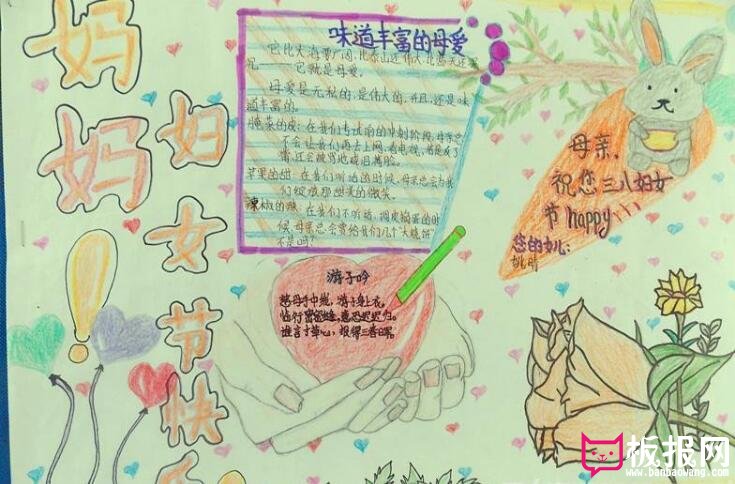 妈妈
妇女节快
味道丰富的母爱
它比大海要广阔，比泰山还伟大，比蓝天还要
——它就是母爱。
母爱是无私的，是伟大的，并且，还是味
道丰富的。
在我们考试前的冲刺阶段，母亲总
不会让我们再去上网、看电视，
苹果的甜：在我们听话的时候，母亲总会为我
们绽放那甜美的微笑。
辣椒的辣：在我们不听话、调皮捣蛋的时
候，母亲总会赏给我们几个“大烧饼”
不是吗？
母亲，
祝您三八妇女
节happy
您的女儿：
游子吟
慈母手中线，游子身上衣，
临行密密缝，意恐迟迟归。
谁言寸草心，报得三春晖。
板报网
www.banbaowang.com